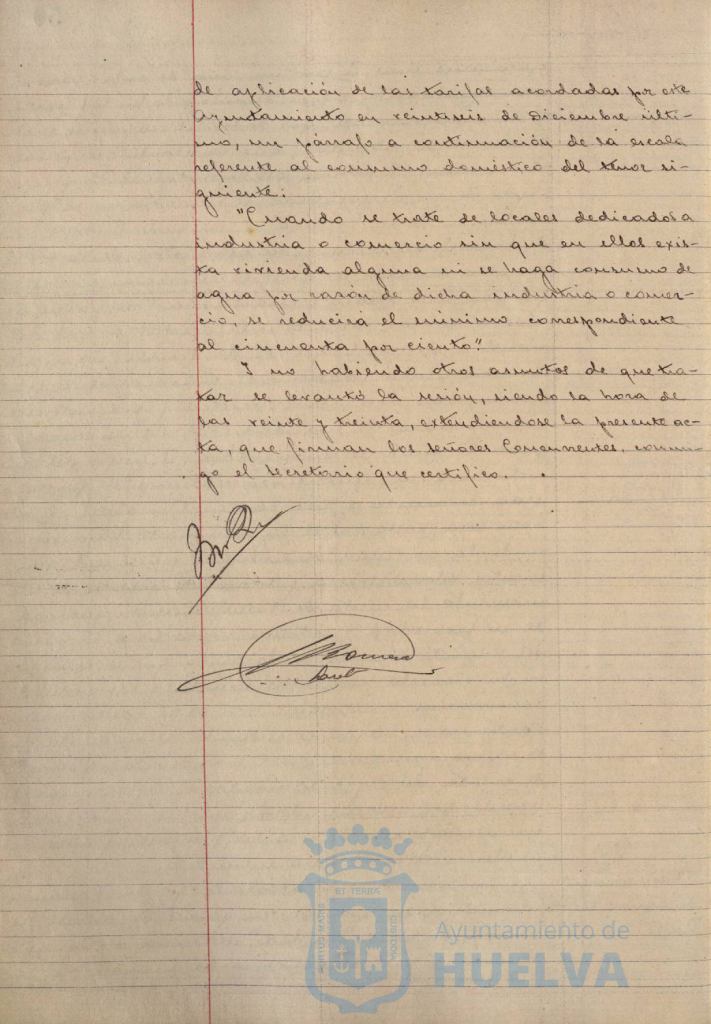 de aplicación de las tarifas acordadas por este
Ayuntamiento en veintiseis de Diciembre últi-
mo, un párrafo a continuación de la escala
referente al consumo doméstico del tenor si-
guiente:
"Cuando se trate de locales dedicados a
industria o comercio sin que en ellos exis-
ta vivienda alguna ni se haga consumo de
agua por razón de dicha industria o comer-
cio, se reducirá el mínimo correspondiente
al cincuenta por ciento".
Y no habiendo otros asuntos de que tra-
tar se levantó la sesión, siendo la hora de
las veinte y treinta, extendiendose la presente ac-
ta, que firman los señores Concurrentes, conmi-
go el Secretario que certifico.
Romero
ET TERRÆ
PORTUS MARIS
CUSTODIA
Ayuntamiento de
HUELVA